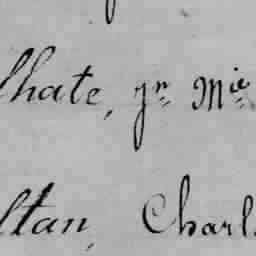 lhate, Jn Mie
ltan, Charl